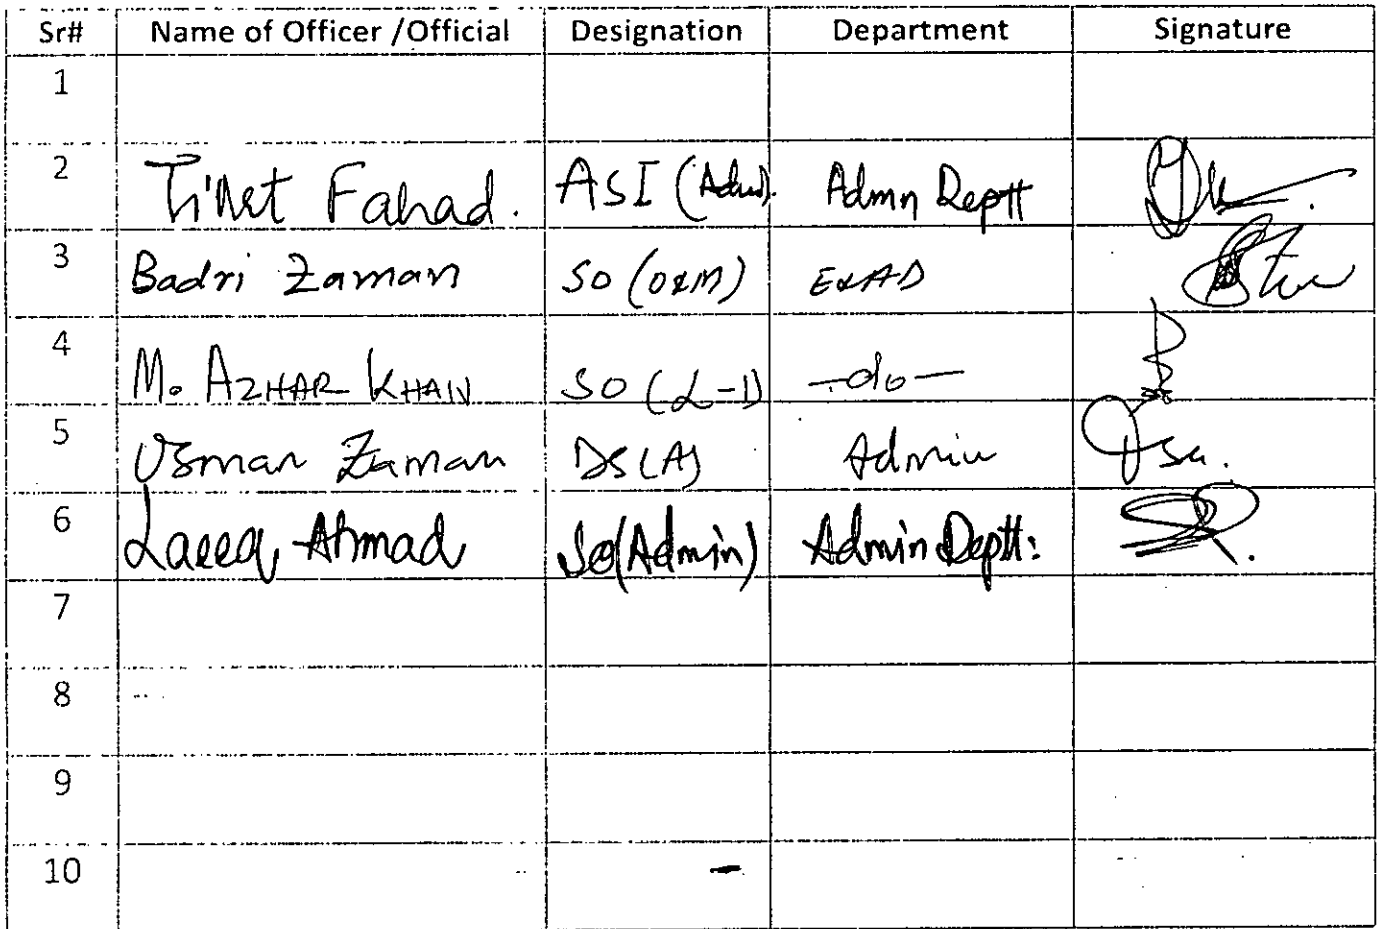 Sr# Name of Officer /Official Designation Department Signature
1
2 Fahad. ASI Admn Deptt
3 Badri Zaman SO (O&M) E&AD
4 M. AZHAR KHAN SO (L-I) —do—
5 Usman Zaman DS(A) Admin
6 Laeeq Ahmad SO(Admin) Admin Deptt:
7
8
9
10